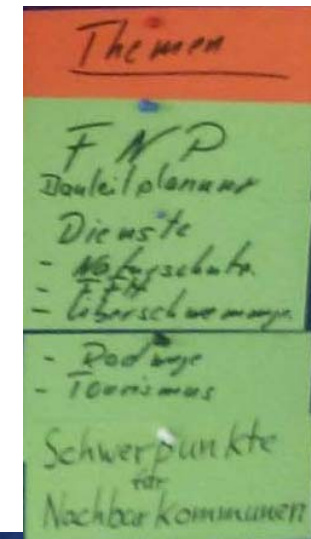 Themen
FNP
Bauleitplanung
Dienste
- Naturschutz
- FFH
- Überschwemmung
- Radwege
- Tourismus
Schwerpunkte
für
Nachbarkommunen